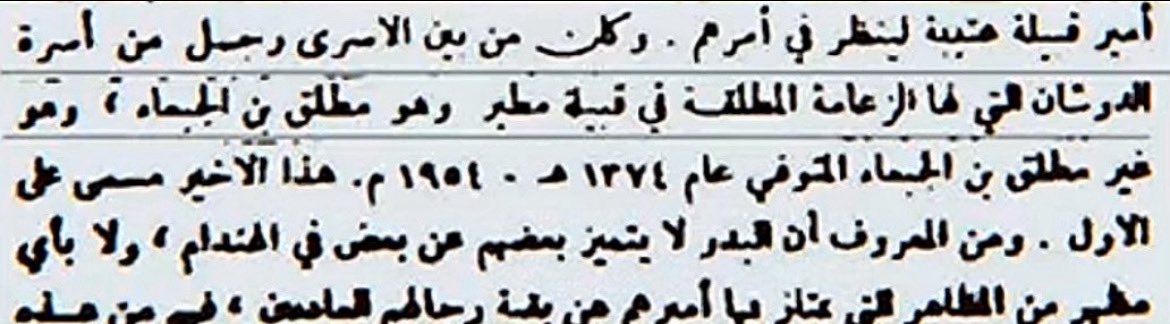 أمير قبيلة عتيبة لينظر في أمرهم . وكان من بين الاسرى رجل من أسرة
الدوشان التي لها الزعامة المطلقة في قبيلة مطير وهو مطلق بن الجبعاء ، وهو
غير مطلق بن الجبعاء المتوفي عام ١٣٧٤ هـ - ١٩٥٤ م. هذا الاخير مسمى على
الاول . ومن المعروف أن البدو لا يتميز بعضهم عن بعض في الهندام ، ولا بأي
مظهر من المظاهر التي يمتاز بها أميرهم عن بقية رجالهم العاديين ، فهم من هذه